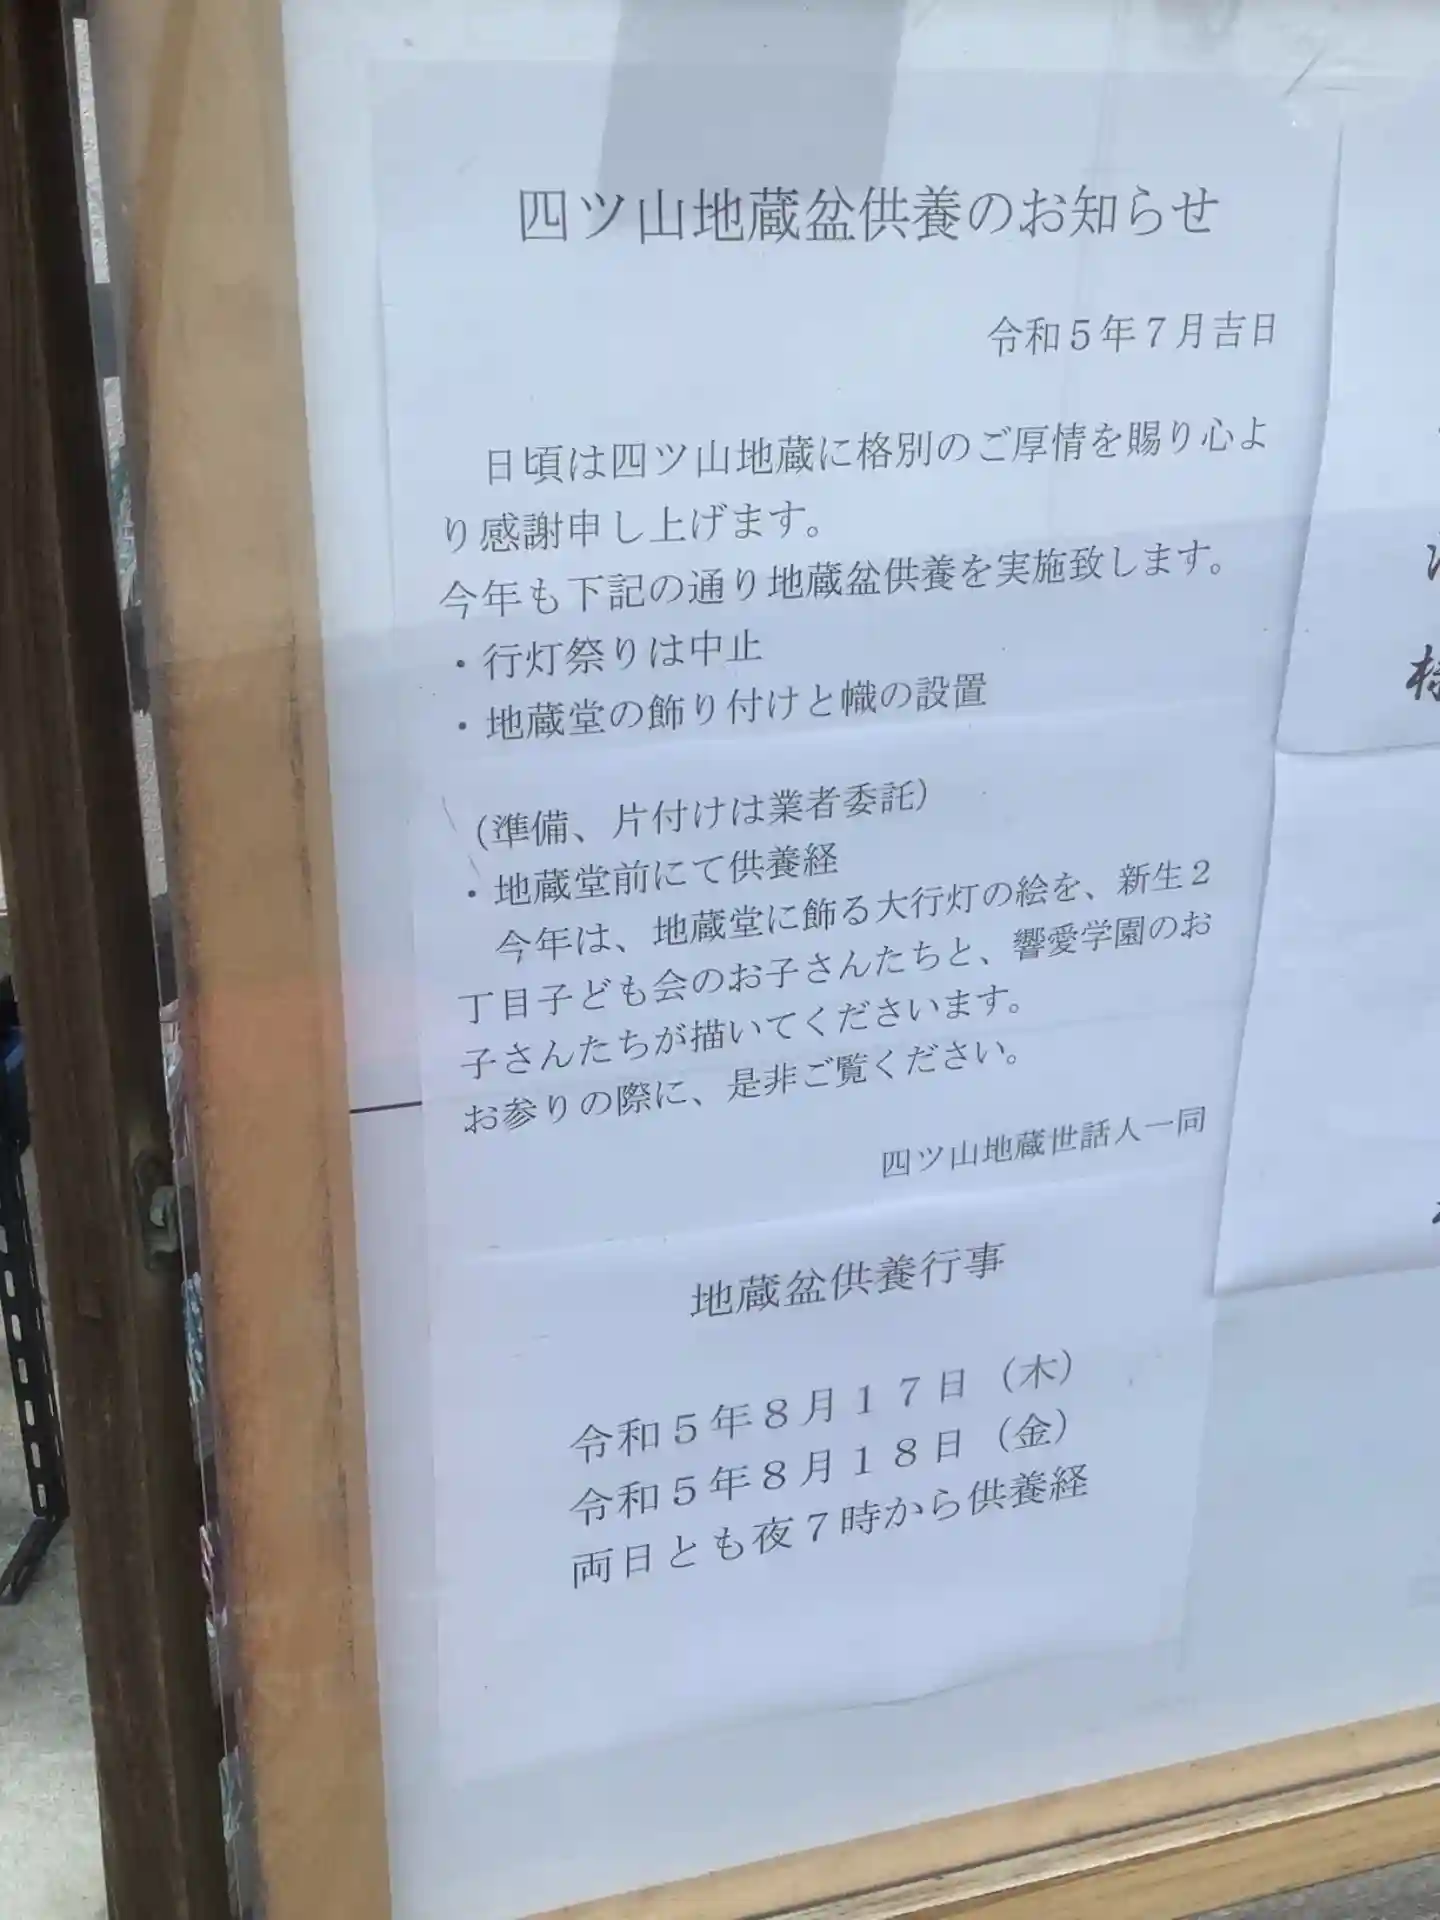 四ツ山地蔵盆供養のお知らせ
令和５年７月吉日
日頃は四ツ山地蔵に格別のご厚情を賜り心よ
り感謝申し上げます。
今年も下記の通り地蔵盆供養を実施致します。
・行灯祭りは中止
・地蔵堂の飾り付けと幟の設置
（準備、片付けは業者委託）
・地蔵堂前にて供養経
今年は、地蔵堂に飾る大行灯の絵を、新生２
丁目子ども会のお子さんたちと、響愛学園のお
子さんたちが描いてくださいます。
お参りの際に、是非ご覧ください。
四ツ山地蔵世話人一同
地蔵盆供養行事
令和５年８月１７日（木）
令和５年８月１８日（金）
両日とも夜７時から供養経